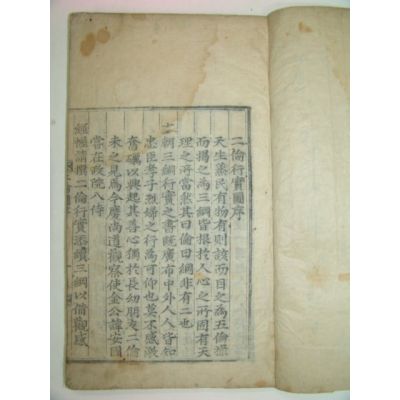 二倫行實圖序
天生蒸民有物有則該而目之爲五倫撮
而揚之爲三綱皆根於人心之所固有天
理之當然其曰倫曰綱非有二也
朝三綱行實之書旣廣布中外人人皆知
忠臣孝子烈婦之行爲可仰也莫不感激
奮礪以興起其善心獨於長幼朋友二倫
未之見焉今慶尚道觀察使金公諱安國
嘗在政院入侍
經幄請撰二倫行實添續三綱以備觀感